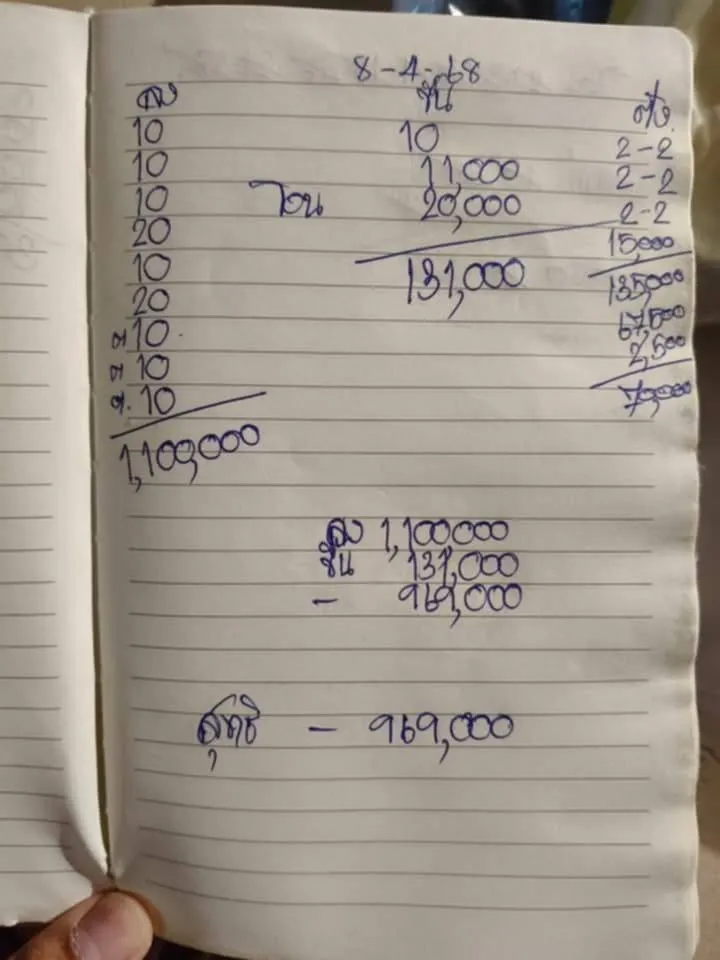 8-4-68
ลง ขึ้น
10 10 2-2
10 11,000 2-2
10 โอน 20,000 2-2
20 15,000
10 131,000 135,000
20 67,500
ต 10 2,500
ต 10 70,000
ต. 10
1,100,000
ลง 1,100,000
ขึ้น 131,000
- 969,000
สุทธิ - 969,000